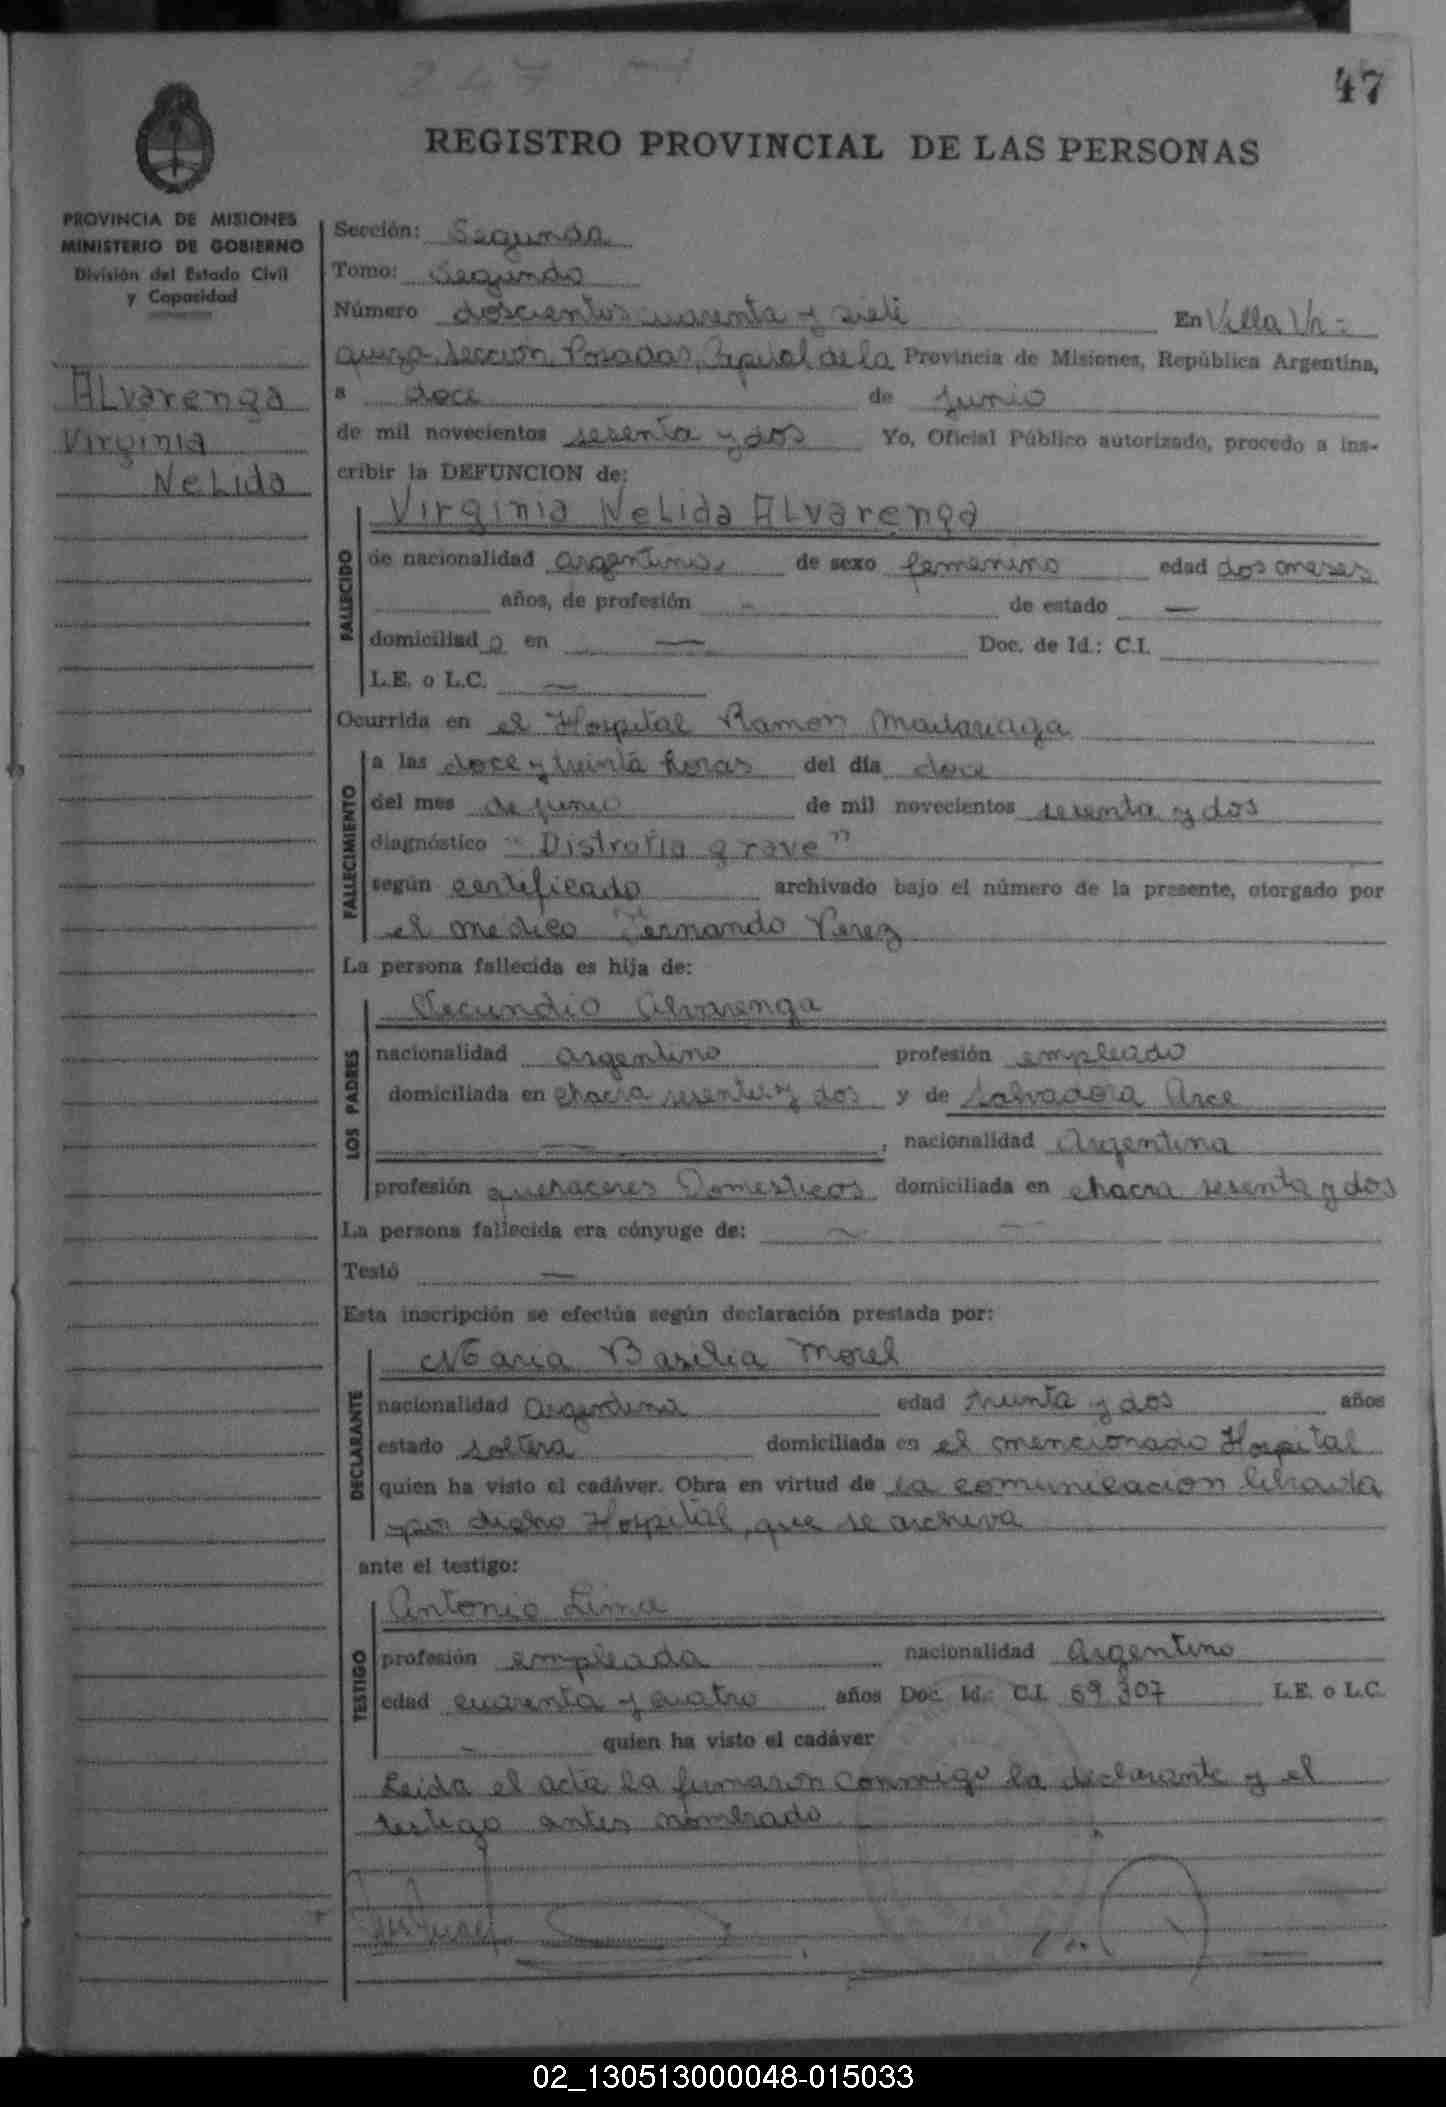 247
47
REGISTRO PROVINCIAL DE LAS PERSONAS
PROVINCIA DE MISIONES
MINISTERIO DE GOBIERNO
División del Estado Civil
y Capacidad
Alvarenga
Virginia
Nelida
Sección: Segunda
Tomo: Segundo
Número doscientos cuarenta y siete En Villa Ur=
quiza Sección Posadas, Capital de la Provincia de Misiones, República Argentina,
a doce de junio
de mil novecientos sesenta y dos Yo, Oficial Público autorizado, procedo a ins-
cribir la DEFUNCION de:
Virginia Nelida Alvarenga
FALLECIDO
de nacionalidad argentina, de sexo femenino edad dos meses
años, de profesión - de estado —
domiciliad o en — Doc. de Id.: C.I.
L.E. o L.C. —
Ocurrida en el Hospital Ramon Madariaga
FALLECIMIENTO
a las doce y treinta horas del día doce
del mes de junio de mil novecientos sesenta y dos
diagnóstico "Distrofia grave"
según certificado archivado bajo el número de la presente, otorgado por
el medico Fernando Perez
La persona fallecida es hija de:
LOS PADRES
Secundio Alvarenga
nacionalidad argentino profesión empleado
domiciliada en chacra sesenta y dos y de Salvadora Arce
—, nacionalidad Argentina
profesión quehaceres Domesticos domiciliada en chacra sesenta y dos
La persona fallecida era cónyuge de: —
Testó —
Esta inscripción se efectúa según declaración prestada por:
DECLARANTE
Maria Basilia Morel
nacionalidad argentina edad treinta y dos años
estado soltera domiciliada en el mencionado Hospital
quien ha visto el cadáver. Obra en virtud de la comunicacion librada
por dicho Hospital, que se archiva
ante el testigo:
TESTIGO
Antonio Lima
profesión empleada nacionalidad Argentino
edad cuarenta y cuatro años Doc. Id.: C.I. 69.307 L.E. o L.C.
— quien ha visto el cadáver
Leida el acta la firmaron conmigo la declarante y el
testigo antes nombrado
02_130513000048-015033